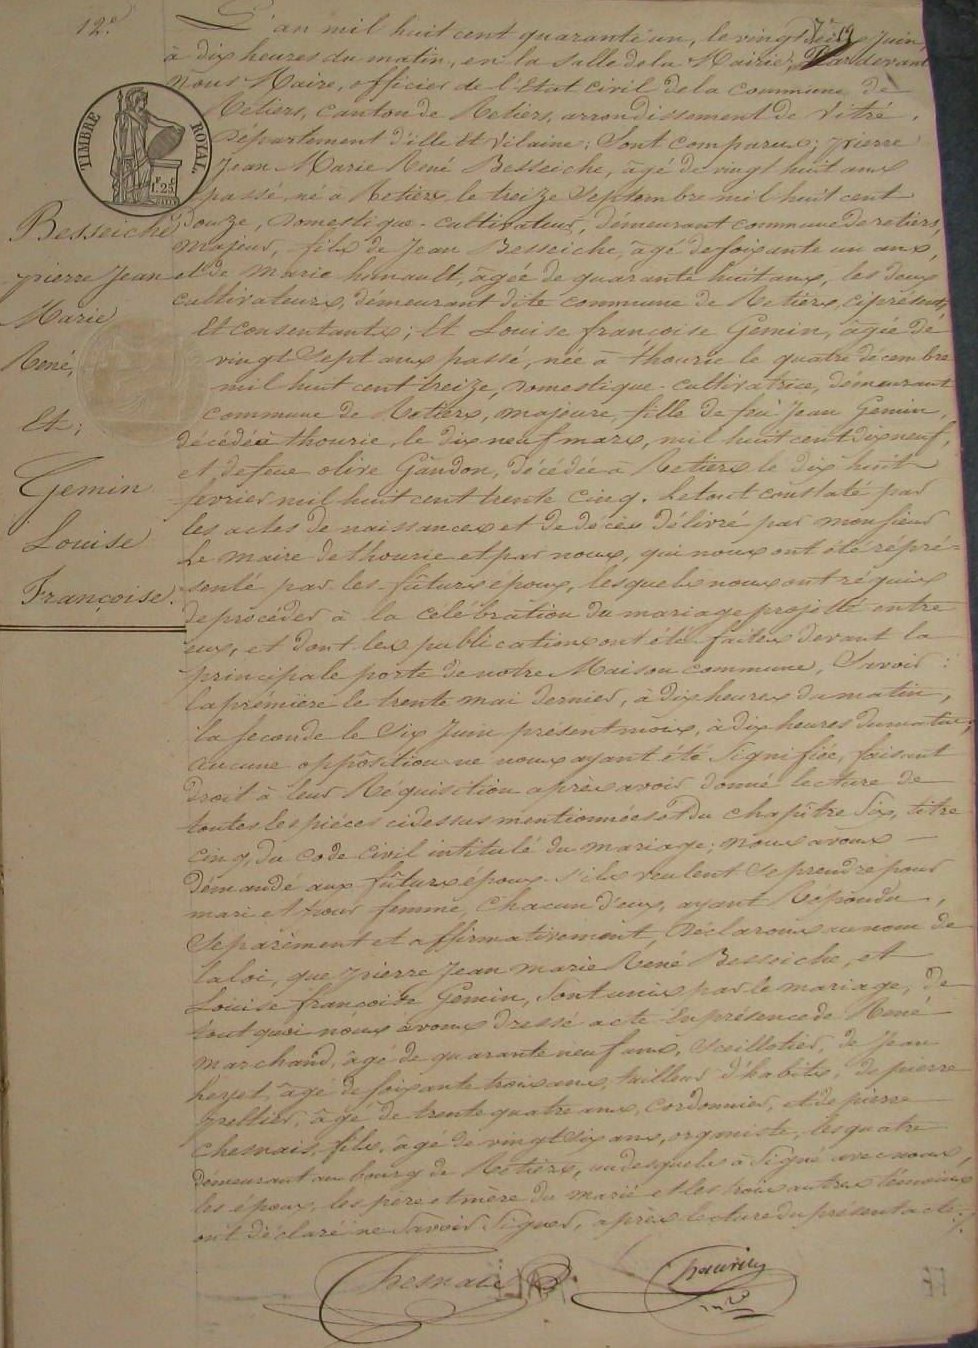 12e.
L'an mil huit cent quarante un, le vingt Juin,
à dix heures du matin, en la Salle de la Mairie, Par devant
Nous Maire, officier de l'Etat Civil de la commune de
Retiers, canton de Retiers, arrondissement de Vitré,
TIMBRE ROYAL
1F.25
Département d'ille et Vilaine; Sont comparus; pierre
Jean Marie René Besseiche, âgé de vingt huit ans
passé, né à Retiers le treize Septembre mil huit cent
Besseiche
douze, domestique-cultivateur, démeurant commune de retiers,
majeur, fils de Jean Besseiche, âgé de soixante un ans,
pierre Jean
et de Marie hunault, âgée de quarante huit ans, les deux
cultivateurs, démeurant dite commune de Retiers, ci présents
Marie
Et consentants; Et Louise françoise Gemin, âgée de
René,
vingt Sept ans passé, née à thourie le quatre décembre
mil huit cent treize, domestique-cultivatrice, démeurant
commune de Retiers, majeure, fille de feu Jean Gemin,
Et;
décédé à thourie, le dix neuf mars, mil huit cent dix neuf,
Gemin
et de feue olive Gandon, décédée à Retiers le dix huit
février mil huit cent trente cinq. Le tout constaté par
les actes de naissances et de décès délivré par monsieur
Louise
Le maire de thourie et par nous, qui nous ont été répré-
Françoise.
senté par les fûturs époux, lesquels nous ont réquis
de procéder à la célébration du mariage projetté entre
eux, et dont les publications ont été faites devant la
principale porte de notre Maison commune, Savoir:
la prémière le trente mai dernier, à dix heures du matin,
la seconde le Six Juin présent mois, à dix heures du matin,
Aucune oppôsition ne nous ayant été Signifiée, faisant
droit à leur Réquisition après avoir donné lecture de
toutes les pièces cidessus mentionnées et du chapître Six, titre
cinq, du code civil intitulé du mariage; nous avons
démandé aux fûturs époux s'ils veulent se prendre pour
mari et pour femme, chacun d'eux, ayant Répondu,
Séparément et affirmativement, Déclarons au nom de
la loi, que pierre Jean marie René Besseiche, et
Louise françoise Gemin, Sont unis par le mariage, de
tout quoi nous avons dressé acte En présence de René
marchand, âgé de quarante neuf ans, de Jean
âgé de soixante trois ans, tailleur d'habits, de pierre
âgé de trente quatre ans, cordonnier, et de pierre
chesnais, fils, âgé de vingt Six ans, les quatre
démeurant au bourg de Retiers, un desquels à Signé avec nous,
les époux, les père et mère du marié et les trois autres témoins
ont déclaré ne Savoir Signer, après lecture du présent acte./.
Chesnais